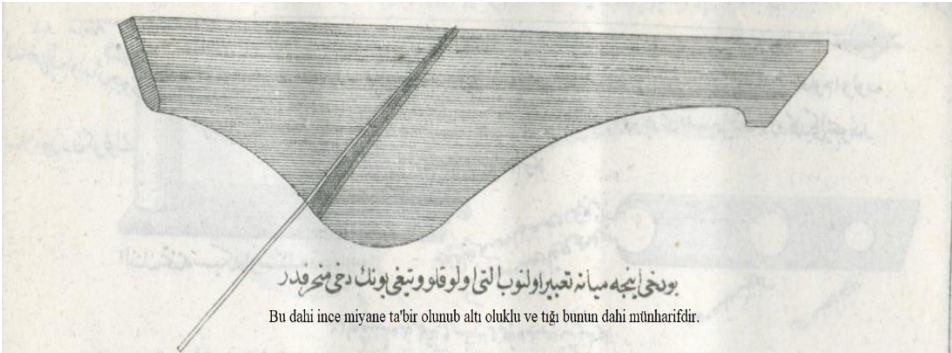 بودخى اينجه ميانه تعبير اولنوب التى اولوقلو و تيغى بونك دخى منحرفدر
Bu dahi ince miyane ta'bir olunub altı oluklu ve tığı bunun dahi münharifdir.